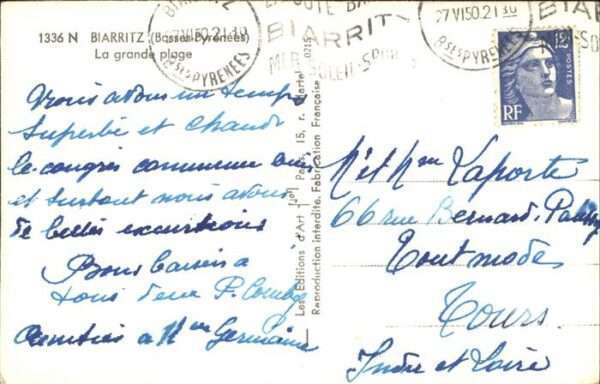 1336 N BIARRITZ (Basses-Pyrénées)
La grande plage
BIARRITZ
27 VI 50.21 30
BSES PYRENEES
BIARRIT
MER-SOLEIL-SPOR
27 VI 50.21 30
BSES PYRENEES
BIAR
POSTES
RF
Nous avons un temps
superbe et chaud
le congrès commence
et surtout nous avons
de belles excursions
Bons baisers à
tous deux P.
Amitiés à Mme Germaine
Les Éditions d'Art Paris, 15, r. Martel
Reproduction interdite. Fabrication Française
M et Mme Laporte
66 rue Bernard-Palissy
Tours
Indre et Loire